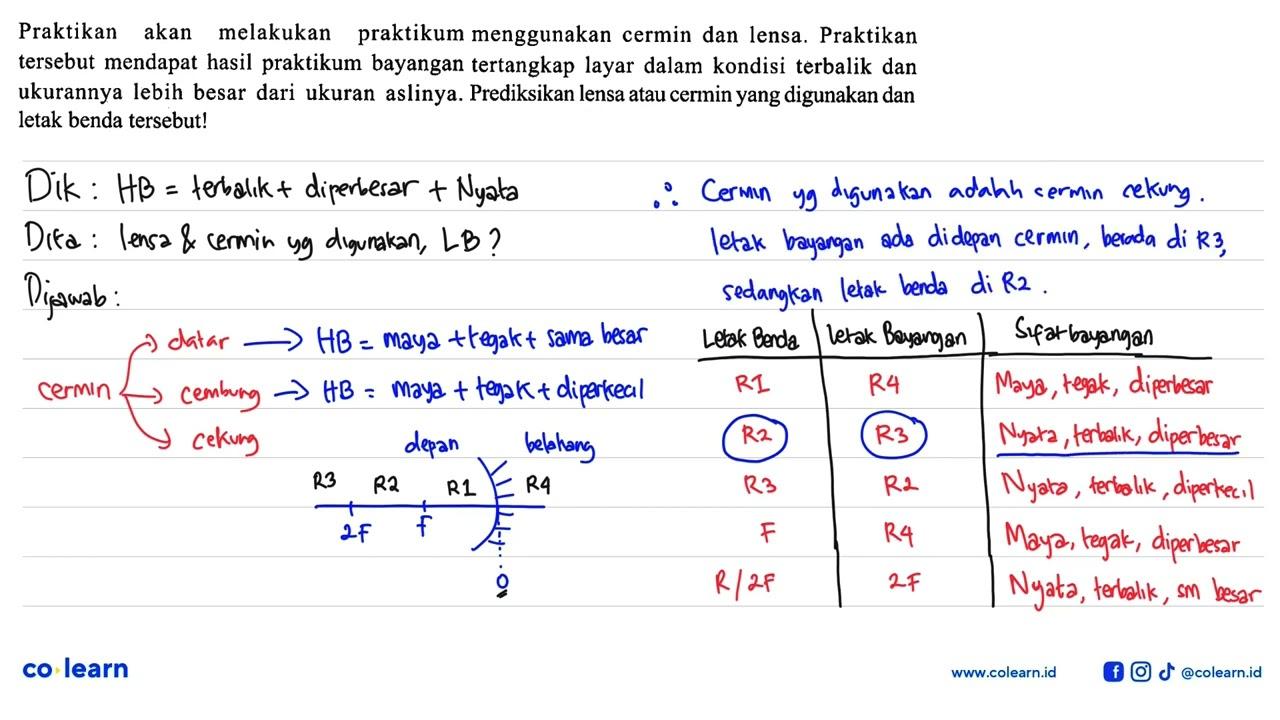 Praktikan akan melakukan praktikum menggunakan cermin dan lensa. Praktikan
tersebut mendapat hasil praktikum bayangan tertangkap layar dalam kondisi terbalik dan
ukurannya lebih besar dari ukuran aslinya. Prediksikan lensa atau cermin yang digunakan dan
letak benda tersebut!
Dik : HB = terbalik + diperbesar + Nyata
Dita : lensa & cermin yg digunakan, LB ?
Dijawab :
cermin
datar → HB = maya + tegak + sama besar
cembung → HB = maya + tegak + diperkecil
cekung
depan belakang
R3 R2 R1 R4
2F f
O
∴ Cermin yg digunakan adalah cermin cekung.
letak bayangan ada didepan cermin, berada di R3,
sedangkan letak benda di R2.
Letak Benda letak Bayangan Sifat bayangan
R1 R4 Maya, tegak, diperbesar
R2 R3 Nyata, terbalik, diperbesar
R3 R2 Nyata, terbalik, diperkecil
F R4 Maya, tegak, diperbesar
R/2F 2F Nyata, terbalik, sm besar
co learn
www.colearn.id @colearn.id